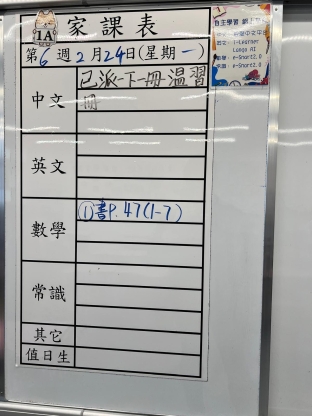 1A 家課表
第6週2月24日(星期一)
中文
已派一下一冊溫習
冊
英文
數學
①書P.47(1-7)
常識
其它
值日生
自主學習
i-Learner
Lungo AI
e-Smart2.0
e-Smart2.0